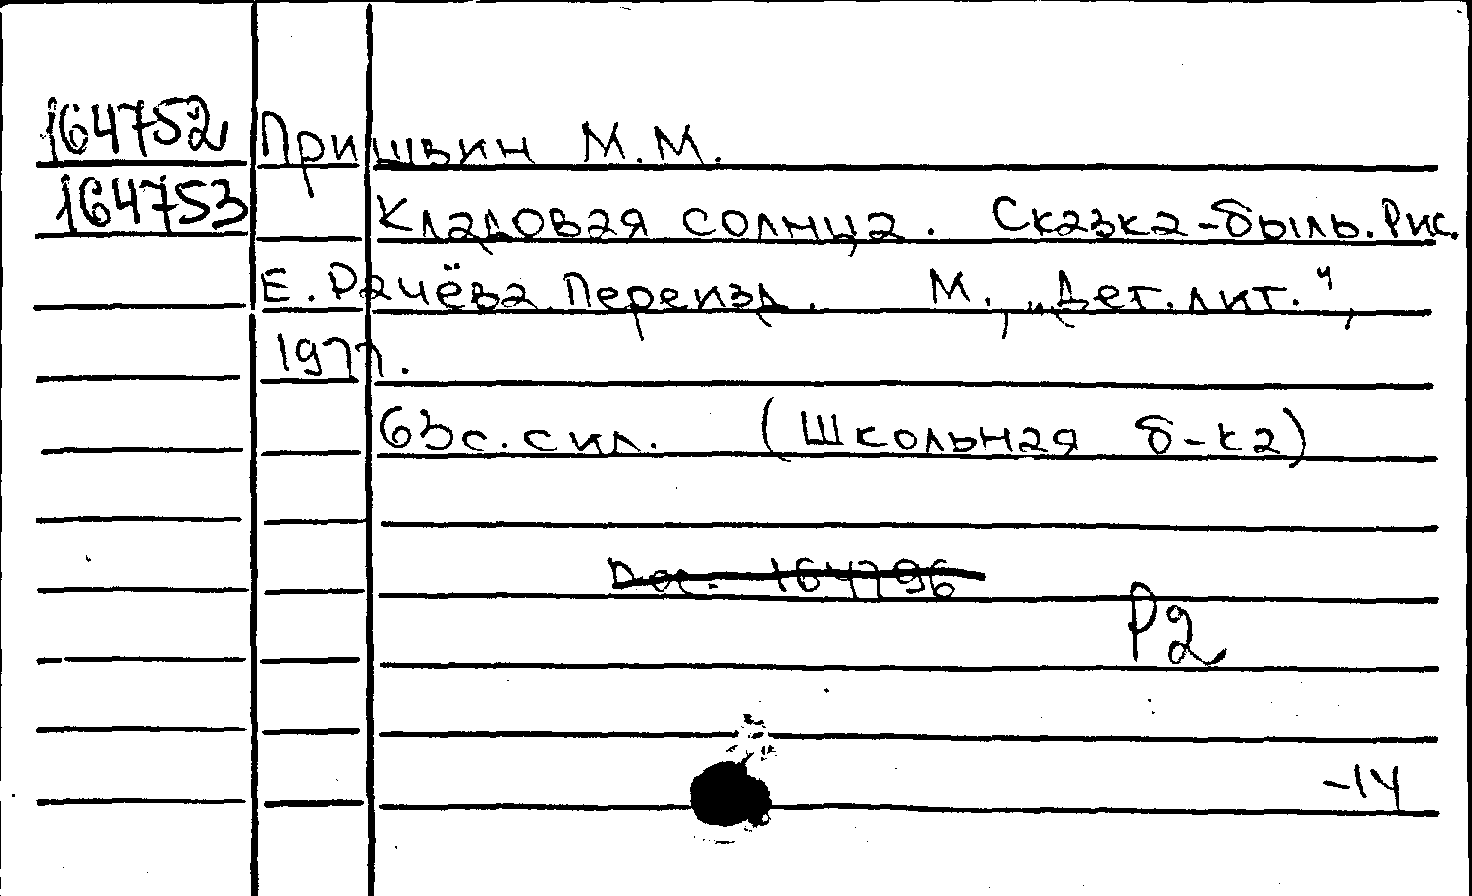 164752 Пришвин М.М.
164753 Кладовая солнца. Сказка-быль. Рис.
Е. Рачёва. Переизд. М., „Дет. лит.“,
1977.
63с. с ил. (Школьная б-ка)
164796
Р2
-14